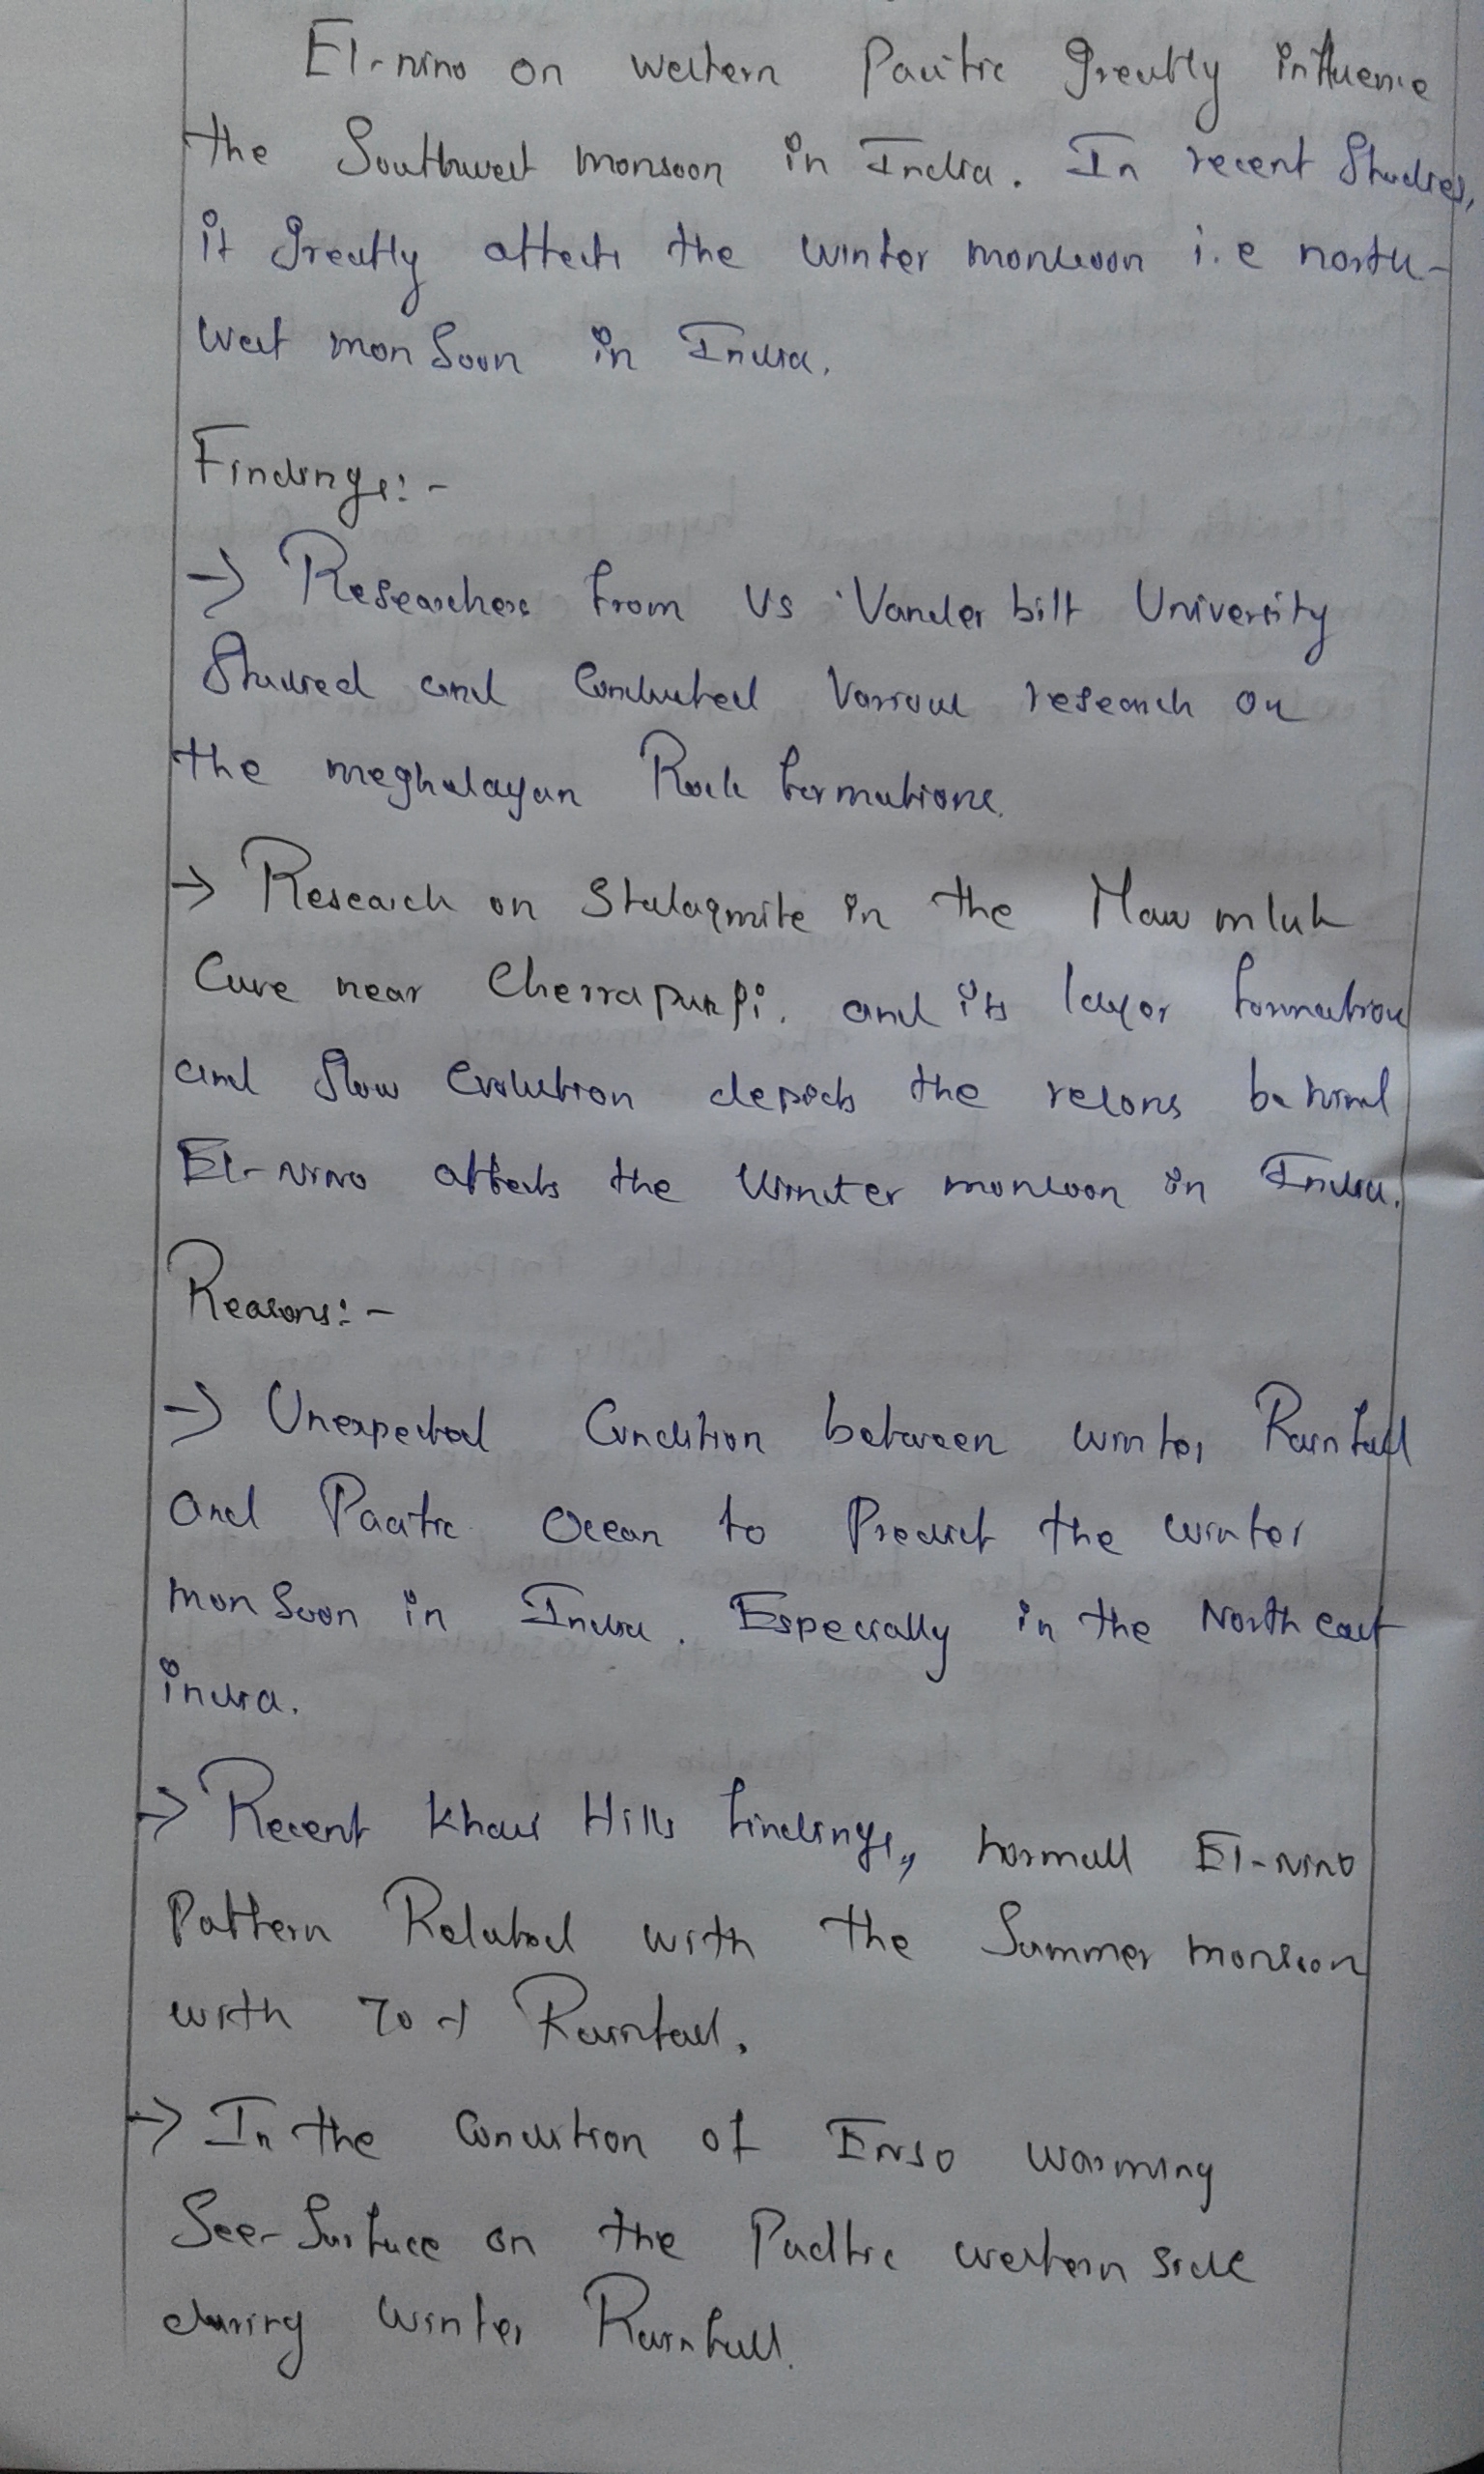 El-nino on western Pacific greatly influence
the Southwest monsoon in India. In recent Studies,
it greatly affects the winter monsoon i.e north-
west monsoon in India.
Findings:-
→ Researchers from US Vanderbilt University
Studied and Conducted Various research on
the meghalayan Rock formations.
→ Research on Stalagmite in the Mawmluh
Cave near Cherrapunji. and its layer formation
and slow Evolution depicts the resons behind
El-NINO affects the Winter monsoon in India.
Reasons:-
→ Unexpected Condition between winter Rainfall
and Pacific Ocean to Predict the winter
monsoon in India. Especially in the North east
india.
→ Recent Khasi Hills findings, normall El-NINO
Pattern Related with the Summer monsoon
with 70% Rainfall.
→ In the Condition of ENSO warming
See-Surface on the Pacific western side
during Winter Rainfall.